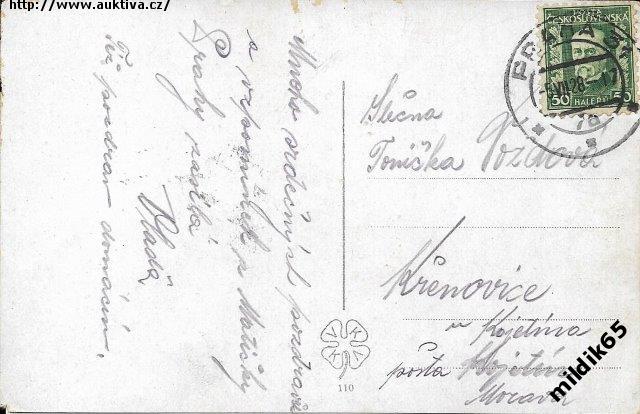 http://www.auktiva.cz/
Mnoho srdečných pozdravů
a vzpomínek z Matičky
Prahy zasílá
Vláďa
Též pozdrav domácím.
POŠTA
ČESKOSLOVENSKÁ
50 HALÉŘŮ 50
PRAHA
VII 28
Slečna
Tonička
Křenovice
u Kojetína
pošta Kojetín
Morava
VKKV
110
mildik65